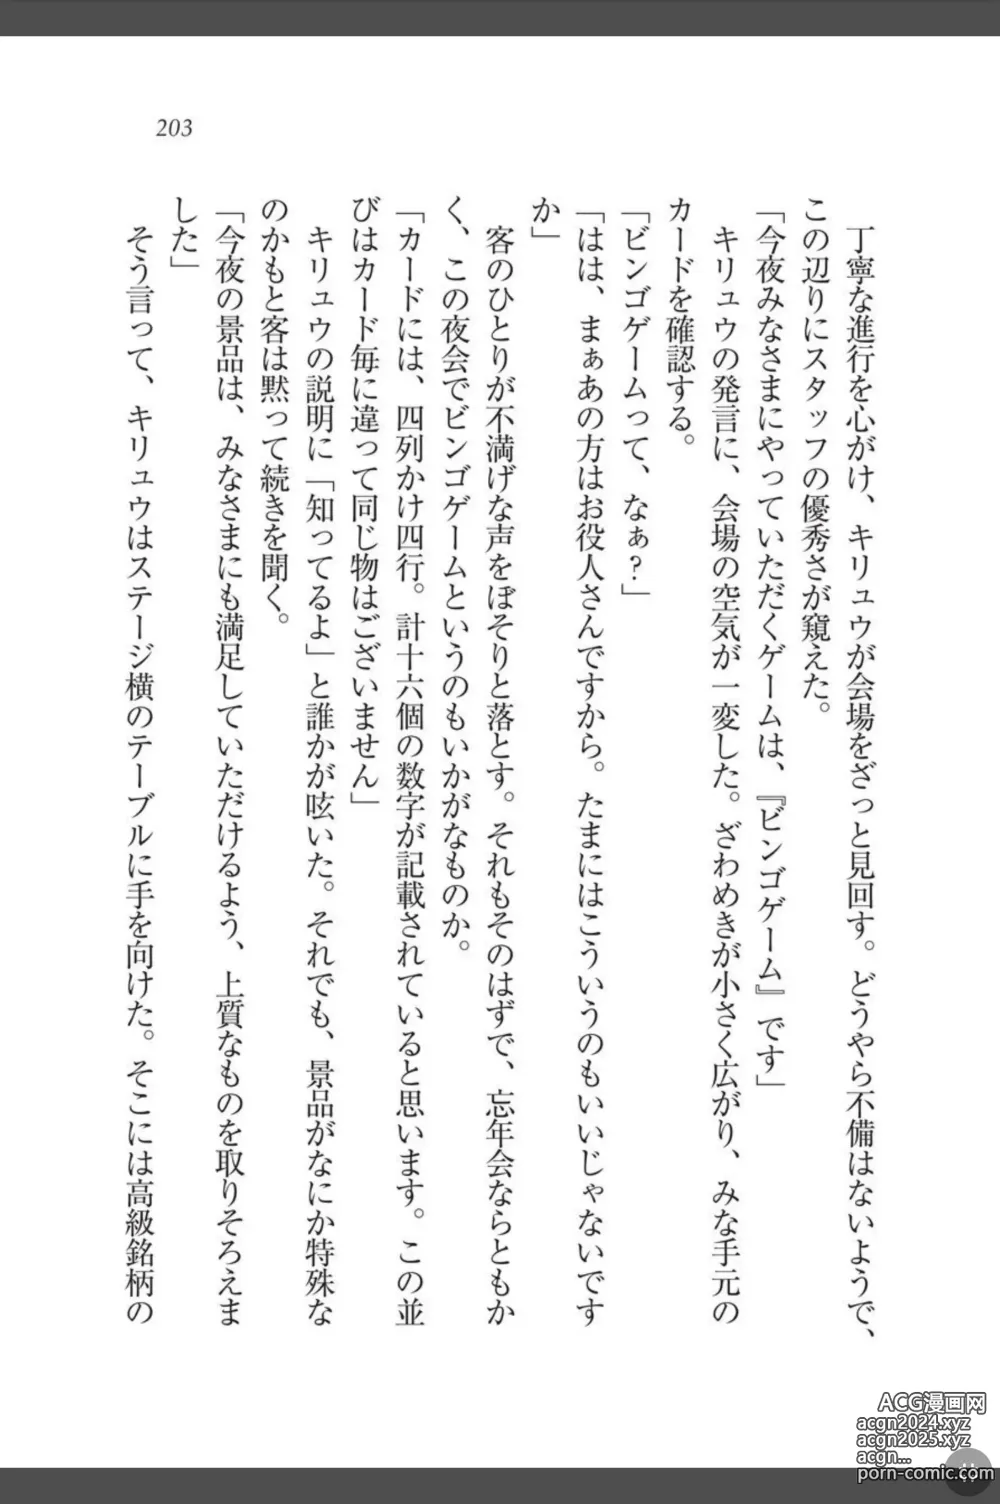 203
丁寧な進行を心がけ、キリュウが会場をざっと見回す。どうやら不備はないようで、
この辺りにスタッフの優秀さが窺えた。
「今夜みなさまにやっていただくゲームは、『ビンゴゲーム』です」
キリュウの発言に、会場の空気が一変した。ざわめきが小さく広がり、みな手元の
カードを確認する。
「ビンゴゲームって、なぁ？」
「はは、まぁあの方はお役人さんですから。たまにはこういうのもいいじゃないです
か」
客のひとりが不満げな声をぼそりと落とす。それもそのはずで、忘年会ならともか
く、この夜会でビンゴゲームというのもいかがなものか。
「カードには、四列かけ四行。計十六個の数字が記載されていると思います。この並
びはカード毎に違って同じ物はございません」
キリュウの説明に「知ってるよ」と誰かが呟いた。それでも、景品がなにか特殊な
のかもと客は黙って続きを聞く。
「今夜の景品は、みなさまにも満足していただけるよう、上質なものを取りそろえま
した」
そう言って、キリュウはステージ横のテーブルに手を向けた。そこには高級銘柄の
ACG漫画网
acgn2024.xyz
acgn2025.xyz
acgn...
porn-comic.com